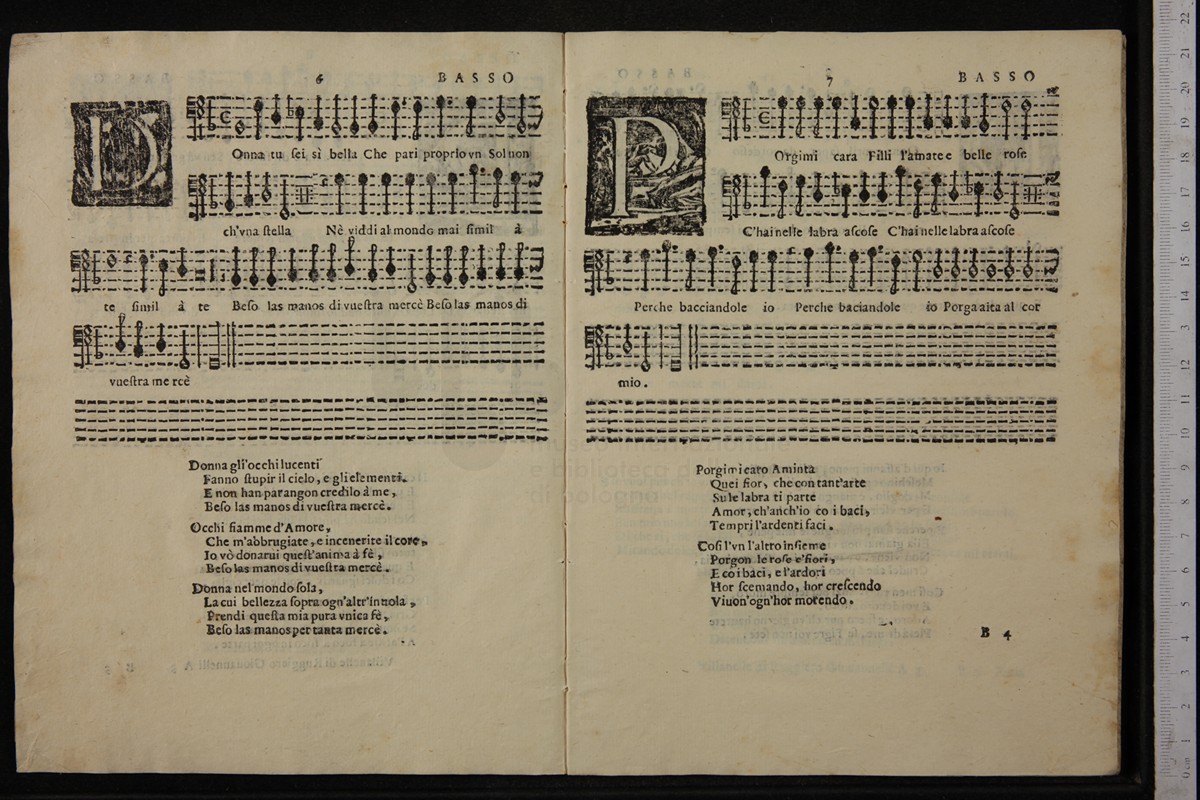 6 BASSO
DOnna tu sei sì bella Che pari proprio vn Sol non
ch'vna stella Nè viddi al mondo mai simil à
te simil à te Beso las manos di vuestra mercè Beso las manos di
vuestra me rcè
Donna gl'occhi lucenti
Fanno stupir il cielo, e gli elementi.
E non han parangon credilo à me,
Beso las manos di vuestra mercè.
Occhi fiamme d'Amore,
Che m'abbrugiate, e incenerite il core,
Io vò donarui quest'anima à fè,
Beso las manos di vuestra mercè.
Donna nel mondo sola,
La cui bellezza sopra ogn'altr'inuola,
Prendi questa mia pura vnica fè,
Beso las manos per tanta mercè.
7 BASSO
POrgimi cara Filli l'amate e belle rose
C'hai nelle labra ascose C'hai nelle labra ascose
Perche bacciandole io Perche baciandole io Porga aita al cor
mio.
Porgimi caro Aminta
Quei fior, che con tant'arte
Su le labra ti parte
Amor, ch'anch'io co i baci,
Tempri l'ardenti faci.
Così l'vn l'altro insieme
Porgon le rose e'fiori,
E co i baci, e l'ardori
Hor scemando, hor crescendo
Viuon'ogn'hor morendo.
B 4
museo internazionale
e biblioteca della
di bologna